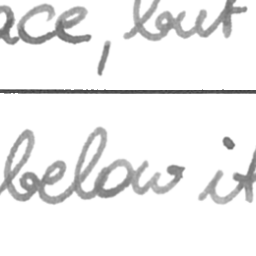 ace, but
below it